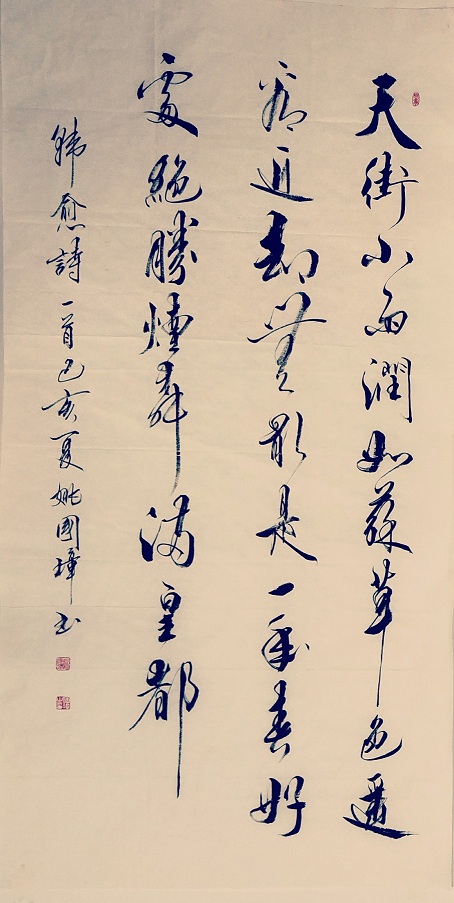 天街小雨潤如蘇草色遥
看近却無最是一年春好
處絶勝煙柳滿皇都
韓愈詩一首己亥夏姚國璋书